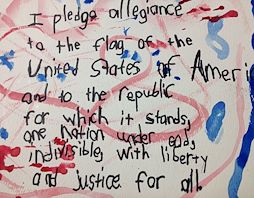 I pledge allegiance
to the flag of the
United States of Ameri
and to the republic
for which it stands,
one nation under God,
indivisible with liberty
and justice for all.